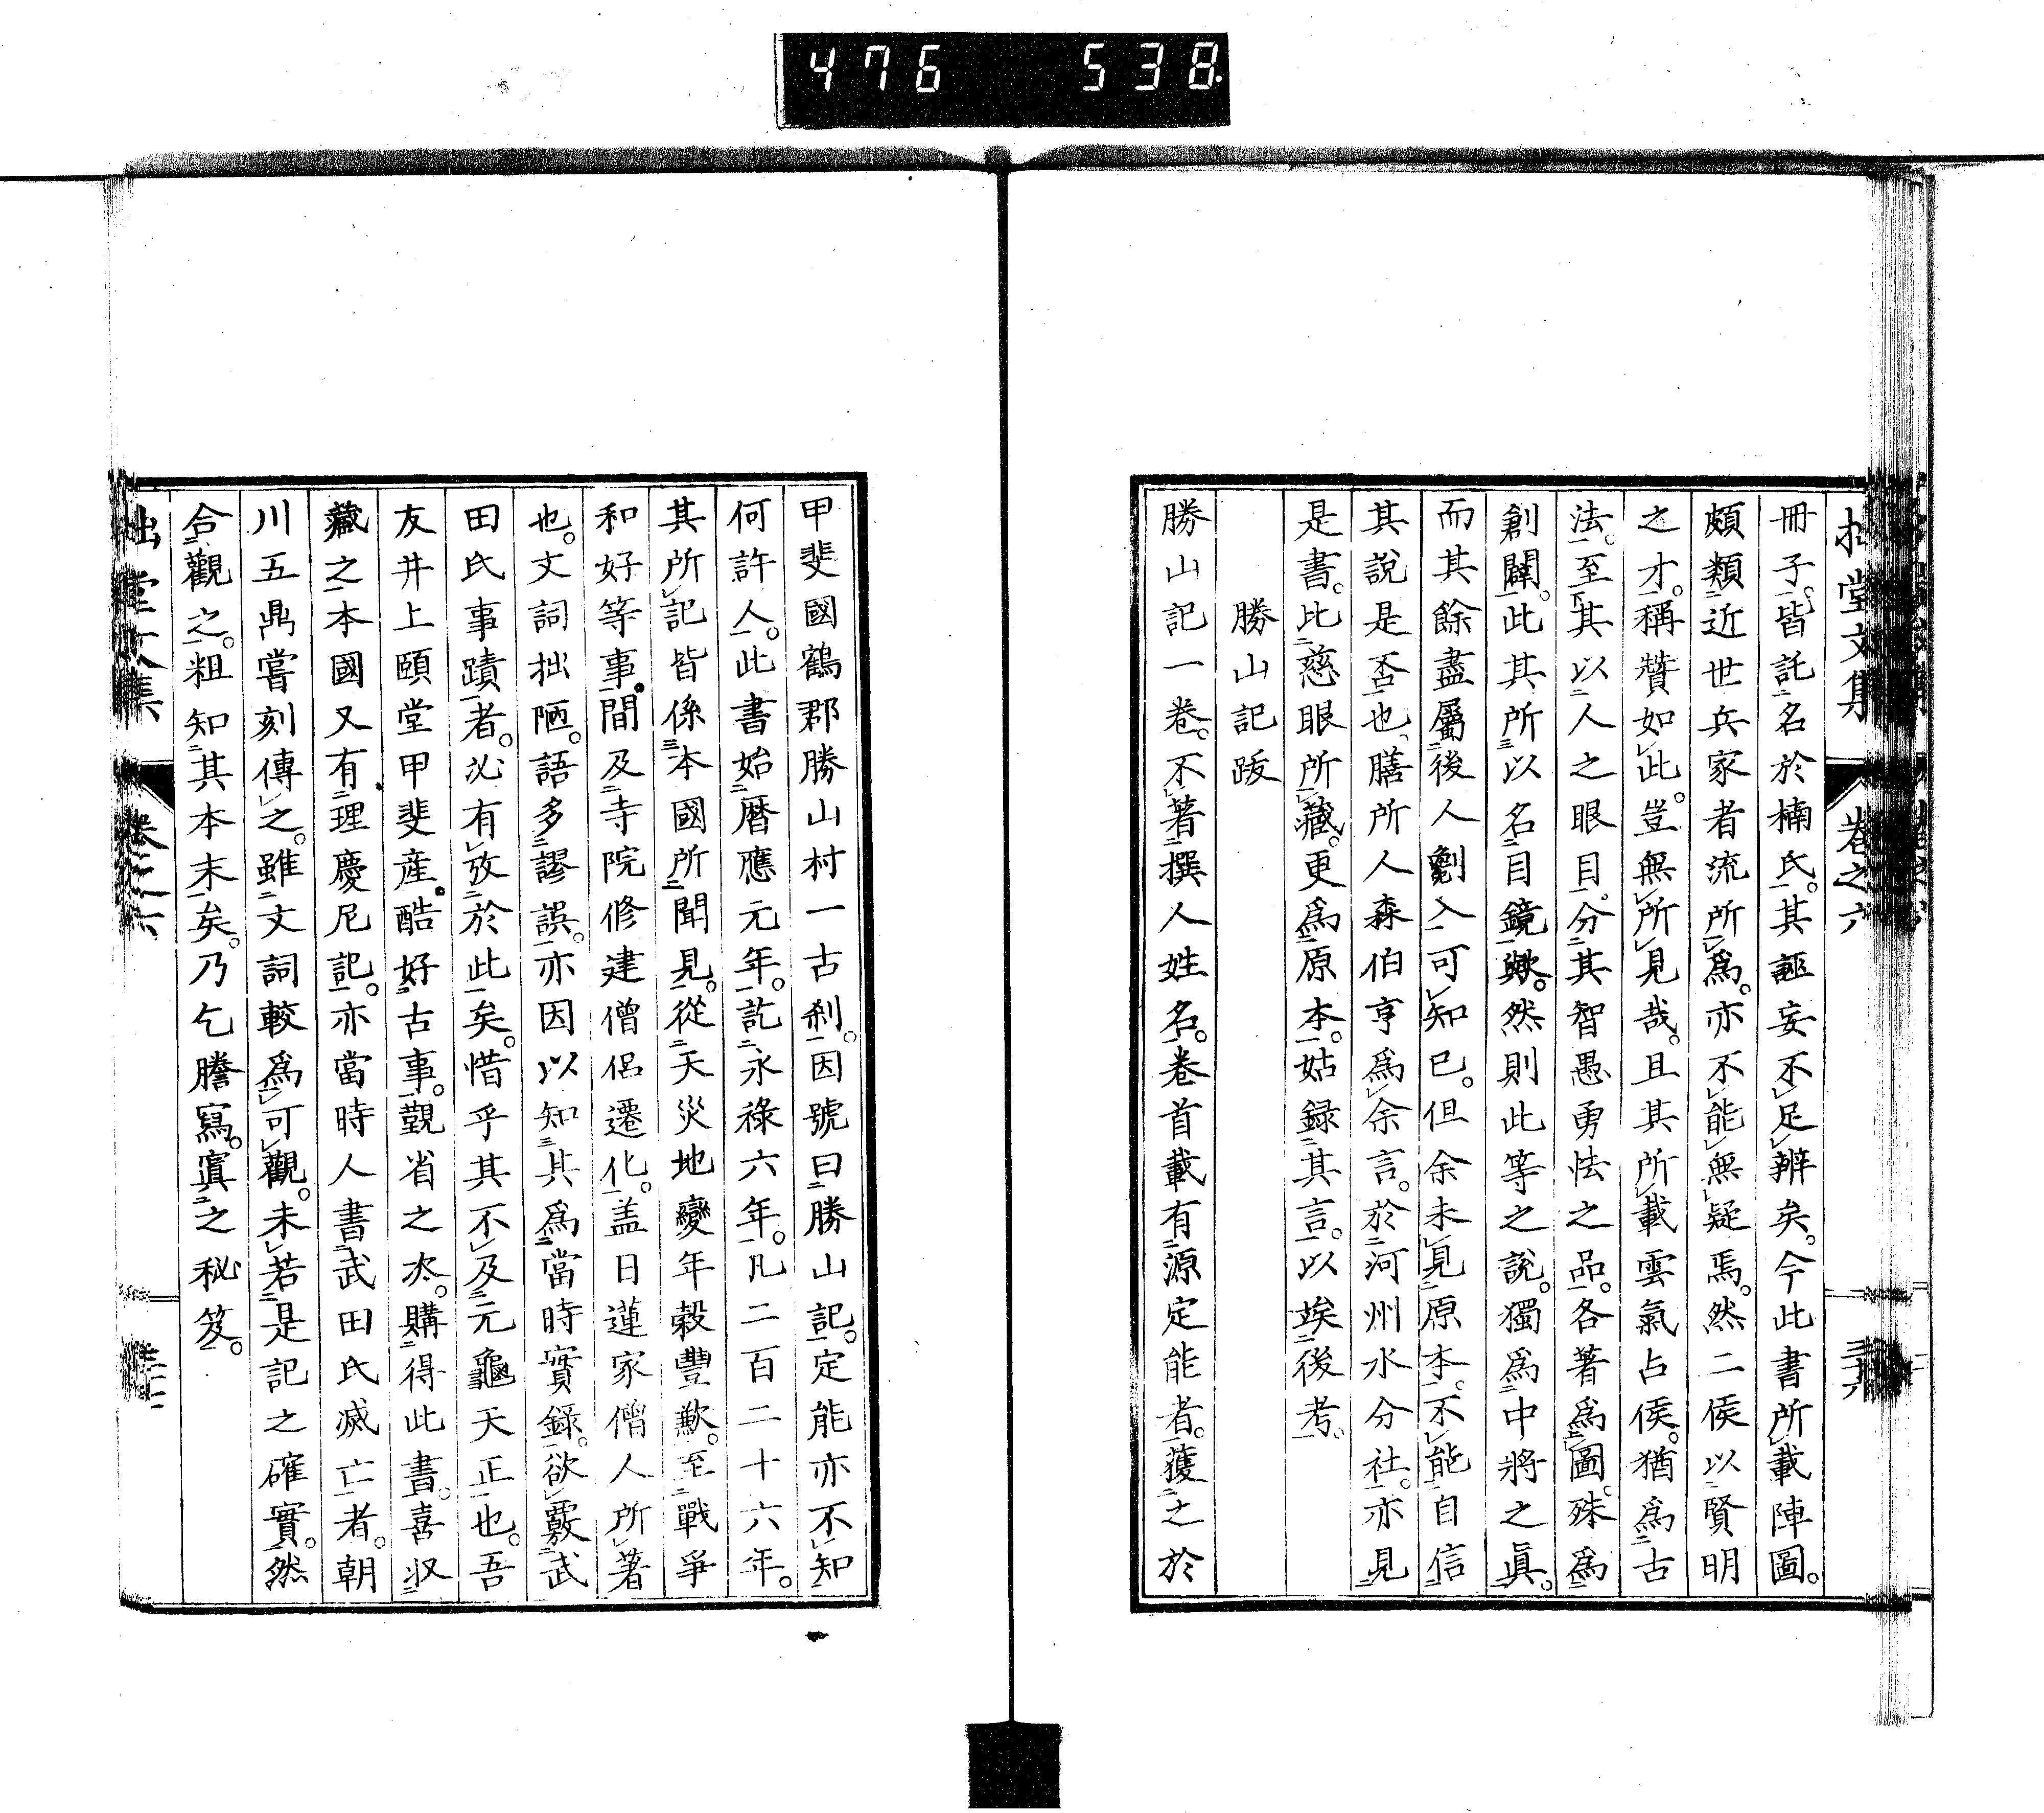 476 538
拙堂文集 卷之六
冊子。皆託名於楠氏。其誣妄不足辨矣。今此書所載陣圖。
頗類近世兵家者流所爲。亦不能無疑焉。然二侯以賢明
之才。稱贊如此。豈無所見哉。且其所載雲氣占侯。猶爲古
法。至其以人之眼目。分其智愚勇怯之品。各著爲圖。殊爲
創闢。此其所以名目鏡歟。然則此等之說。獨爲中將之眞。
而其餘盡屬後人劖入可知已。但余未見原本。不能自信
其說是否也。膳所人森伯亨爲余言。於河州水分社。亦見
是書。比慈眼所藏。更爲原本。姑録其言。以埃後考。
勝山記跋
勝山記一卷。不著撰人姓名。卷首載有源定能者。獲之於
甲斐國鶴郡勝山村一古刹。因號曰勝山記。定能亦不知
何許人。此書始曆應元年。訖永祿六年。凡二百二十六年。
其所記皆係本國所聞見。從天災地變年穀豐歉。至戰爭
和好等事。間及寺院修建僧侶遷化。盖日蓮家僧人所著
也。文詞拙陋。語多謬誤。亦因以知其爲當時實錄。欲覈武
田氏事蹟者。必有攷於此矣。惜乎其不及元龜天正也。吾
友井上頤堂甲斐產。酷好古事。觀省之次。購得此書。喜収
藏之。本國又有理慶尼記。亦當時人書武田氏滅亡者。朝
川五鼎嘗刻傳之。雖文詞較爲可觀。未若是記之確實。然
合觀之。粗知其本末矣。乃乞謄寫。寘之秘笈。
拙堂文集 卷之六